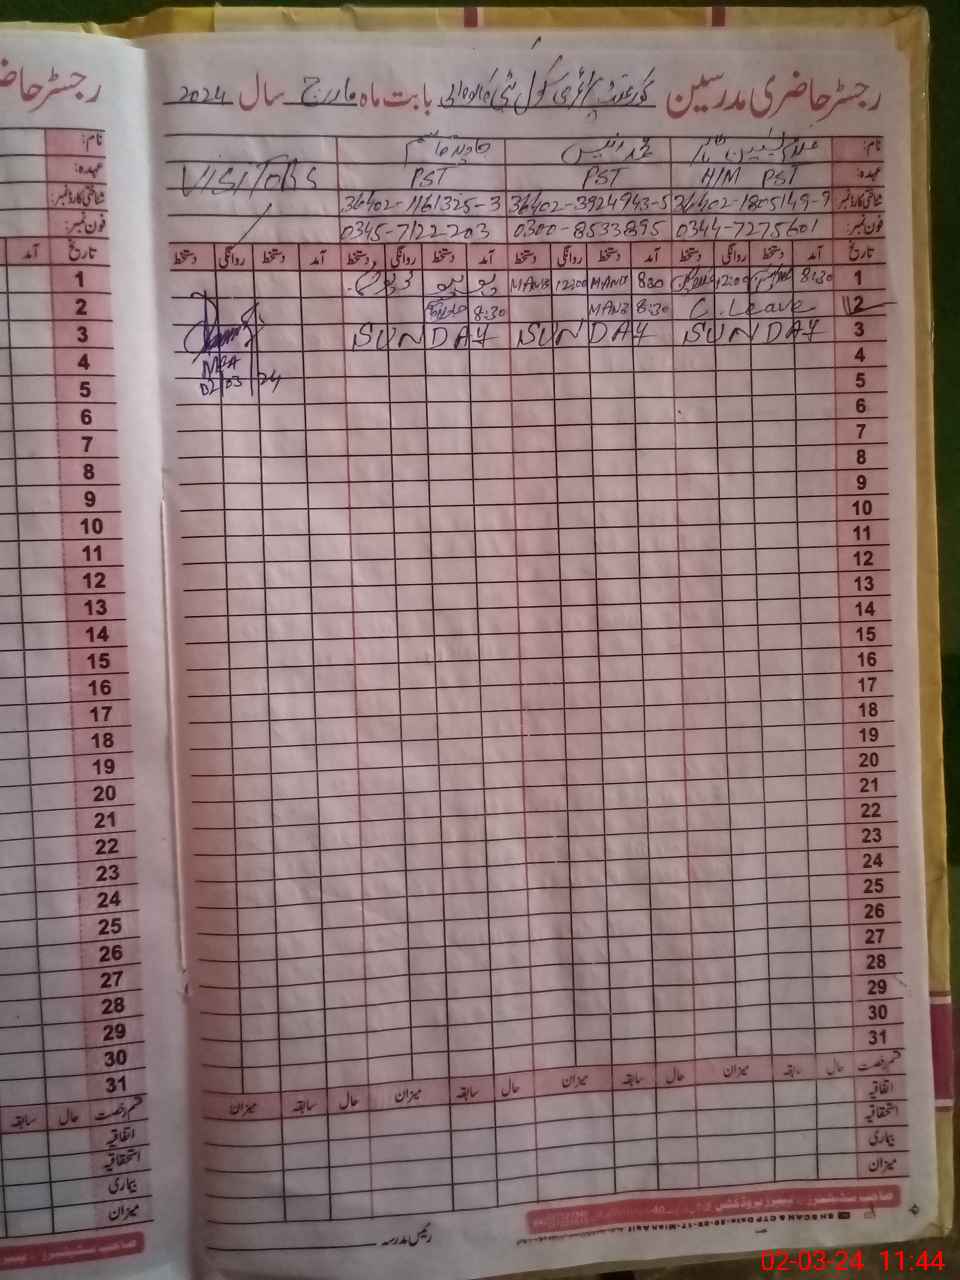 رجسٹر حاضری مدرسین گورنمنٹ پرائمری سکول بابت ماہ مارچ سال 2024
نام: غلام یٰسین محمد جاوید قاسم
عہدہ: H/M PST PST PST VISITORS
شناختی کارڈ نمبر: 36402-1805149-9 36402-3924943-5 36402-1161325-3
فون نمبر: 0344-7275601 0300-8533895 0345-7122203
تاریخ آمد دستخط روانگی دستخط آمد دستخط روانگی دستخط آمد دستخط روانگی دستخط آمد دستخط روانگی دستخط
1 8:30 12:00 8:30 12:00
2 C. Leave 8:30 8:30
3 SUNDAY SUNDAY SUNDAY
4 MEA
5 02/03/24
6
7
8
9
10
11
12
13
14
15
16
17
18
19
20
21
22
23
24
25
26
27
28
29
30
31
قسم رخصت حال سابقہ میزان حال سابقہ میزان حال سابقہ میزان حال سابقہ میزان
اتفاقیہ
استحقاقیہ
بیماری
میزان
رئیس مدرسہ
تاریخ آمد
نام:
عہدہ:
شناختی کارڈ نمبر:
فون نمبر:
1
2
3
4
5
6
7
8
9
10
11
12
13
14
15
16
17
18
19
20
21
22
23
24
25
26
27
28
29
30
31
قسم رخصت حال سابقہ
اتفاقیہ
استحقاقیہ
بیماری
میزان
02-03-24 11:44